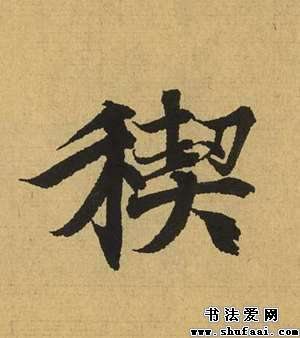 稧
书法爱网
www.shufaai.com